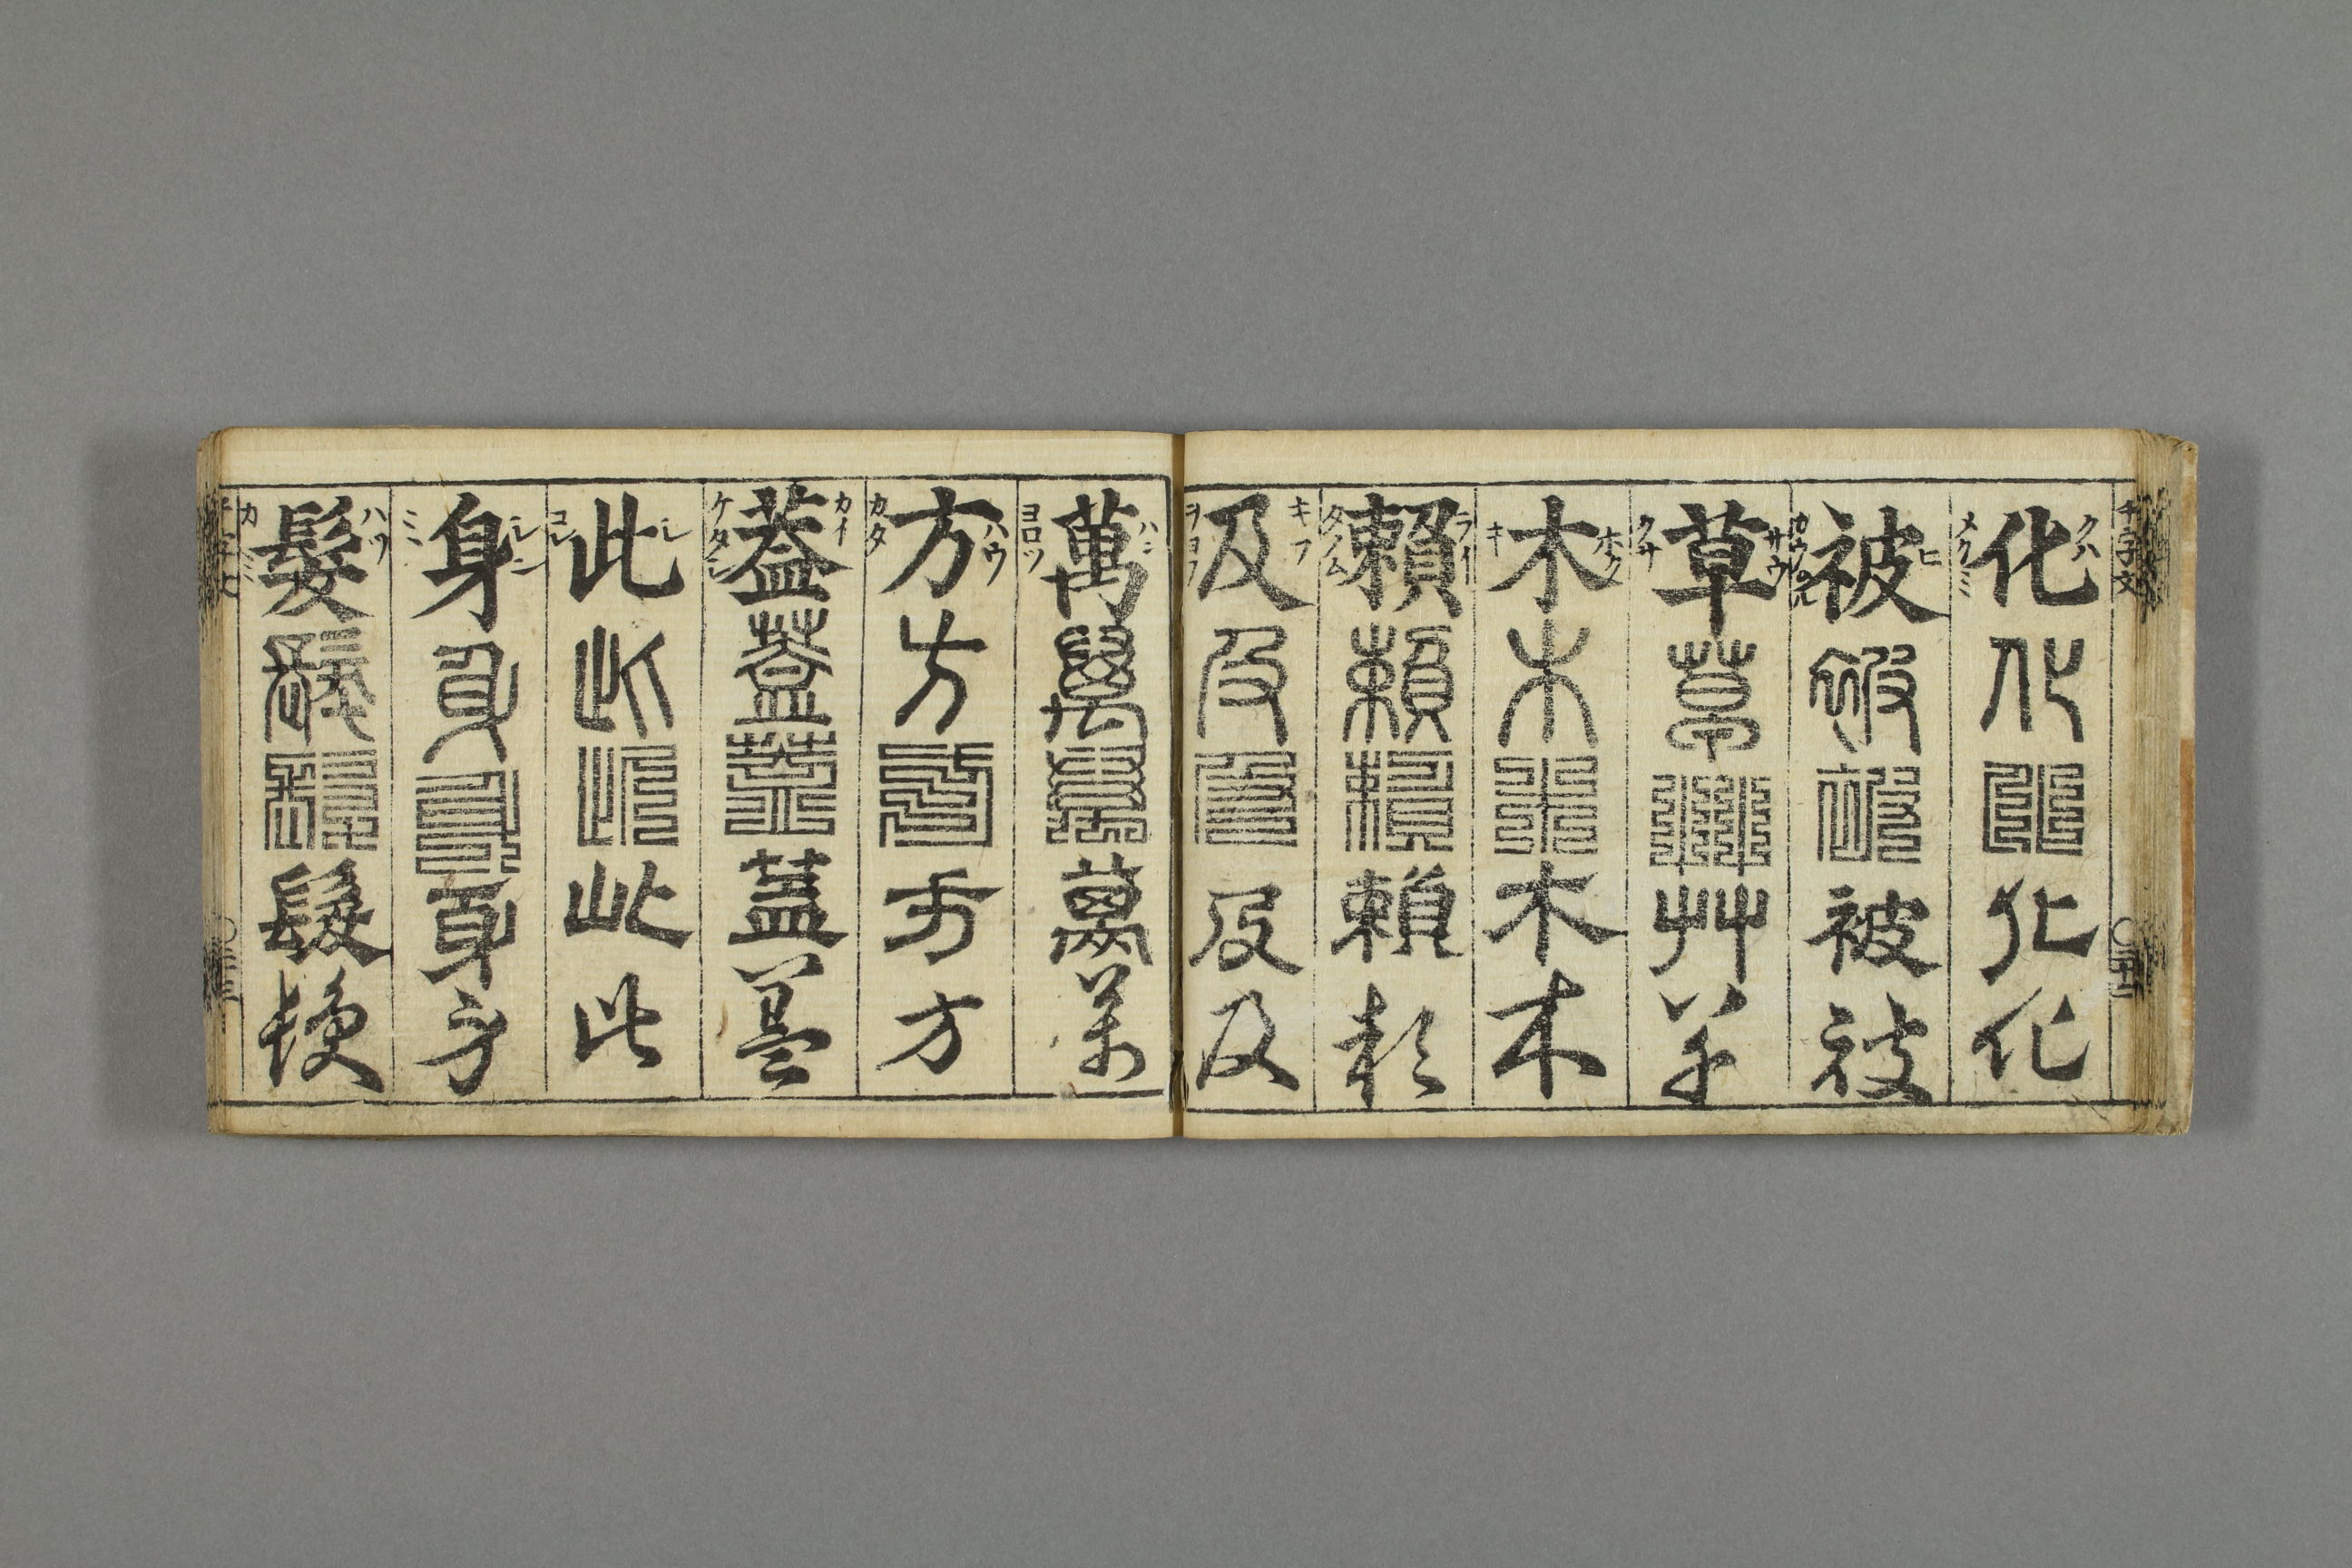 千字文
クハ 化 化 化 化 化 メクミ
ヒ 被 被 被 被 被 カウムル
サウ 草 草 草 艸 草 クサ
ホク 木 木 木 木 木 キ
ライ 賴 賴 賴 賴 賴 タノム
キフ 及 及 及 及 及 ヲヨフ
ハン 萬 萬 萬 萬 萬 ヨロツ
ハウ 方 方 方 方 方 カタ
カイ 蓋 蓋 蓋 蓋 蓋 ケタシ
シ 此 此 此 此 此 コレ
シン 身 身 身 身 身 ミ
ハツ 髮 髮 髮 髮 髮 カミ